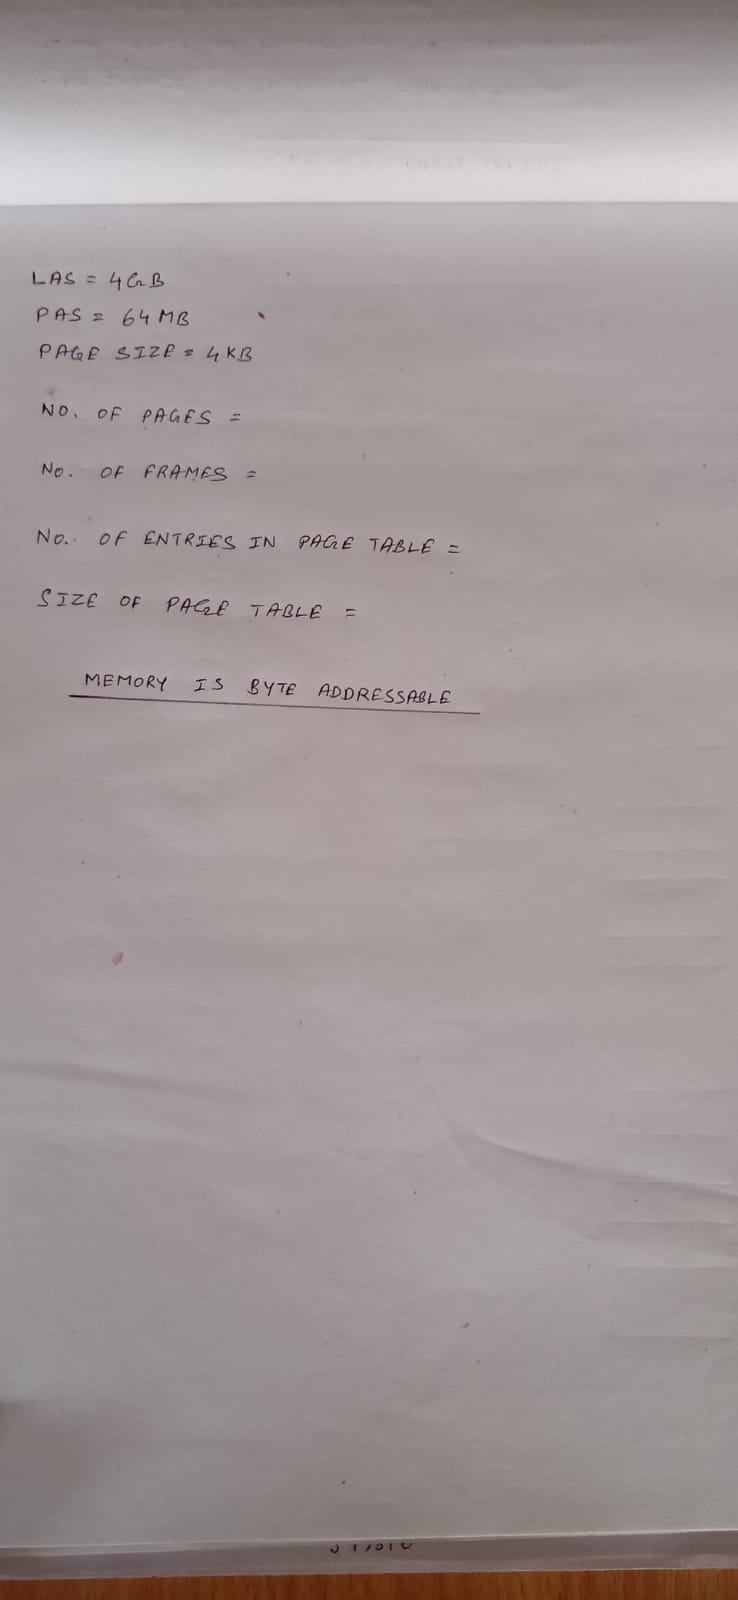 LAS = 4GB
PAS = 64 MB
PAGE SIZE = 4 KB
NO. OF PAGES =
No. OF FRAMES =
No. OF ENTRIES IN PAGE TABLE =
SIZE OF PAGE TABLE =
MEMORY IS BYTE ADDRESSABLE